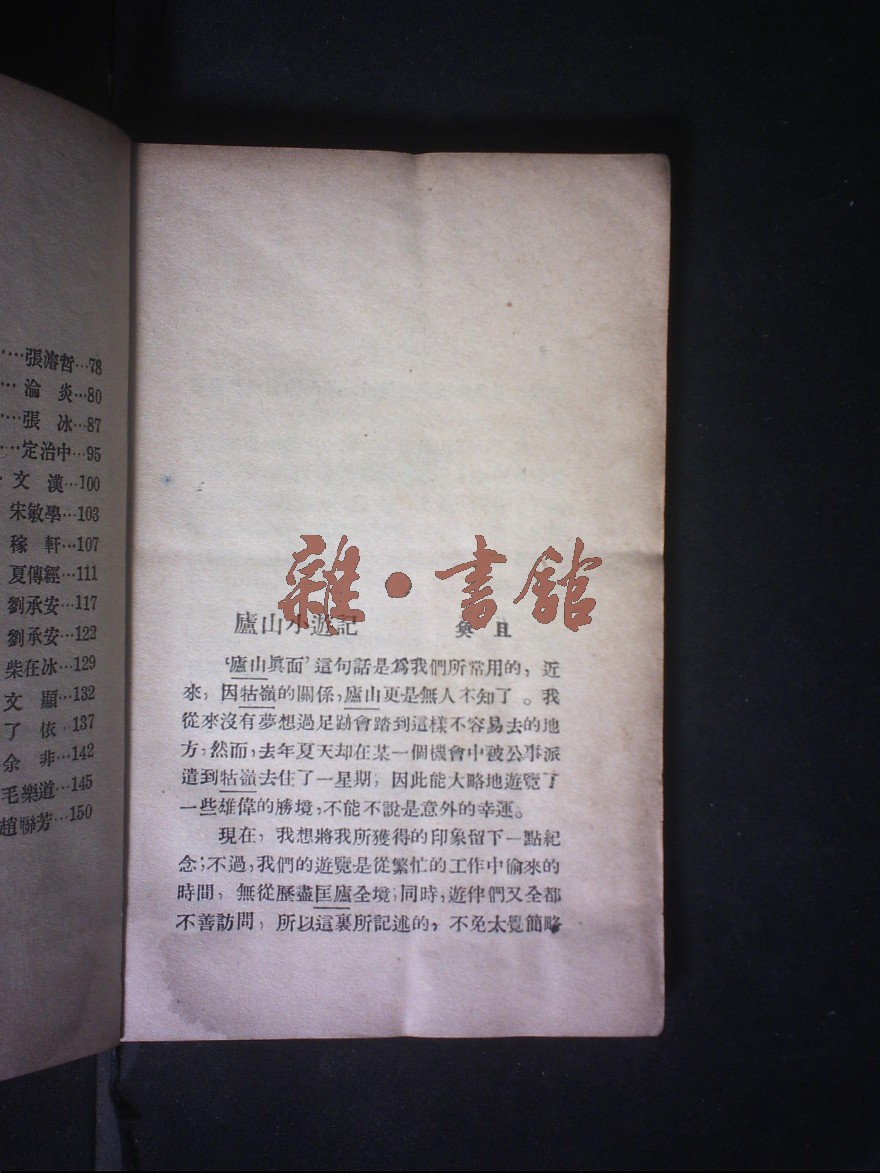 …張溶哲…78
…淪 炎…80
…張 冰…87
…定治中…95
文 漢…100
宋敏學…103
稼 軒…107
夏傳經…111
劉承安…117
劉承安…122
柴在冰…129
文 顯…132
了 依…137
余 非…142
毛樂道…145
趙聯芳…150
雜·書舘
廬山小遊記 奠 且
‘廬山眞面’這句話是爲我們所常用的，近
來，因牯嶺的關係，廬山更是無人不知了。我
從來沒有夢想過足跡會踏到這樣不容易去的地
方；然而，去年夏天却在某一個機會中被公事派
遣到牯嶺去住了一星期，因此能大略地遊覽了
一些雄偉的勝境，不能不說是意外的幸運。
現在，我想將我所獲得的印象留下一點紀
念；不過，我們的遊覽是從繁忙的工作中偷來的
時間，無從歷盡匡廬全境；同時，遊伴們又全都
不善訪問，所以這裏所記述的，不免太覺簡略